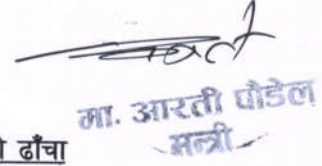 मा. आरती पौडेल
मन्त्री
ढाँचा